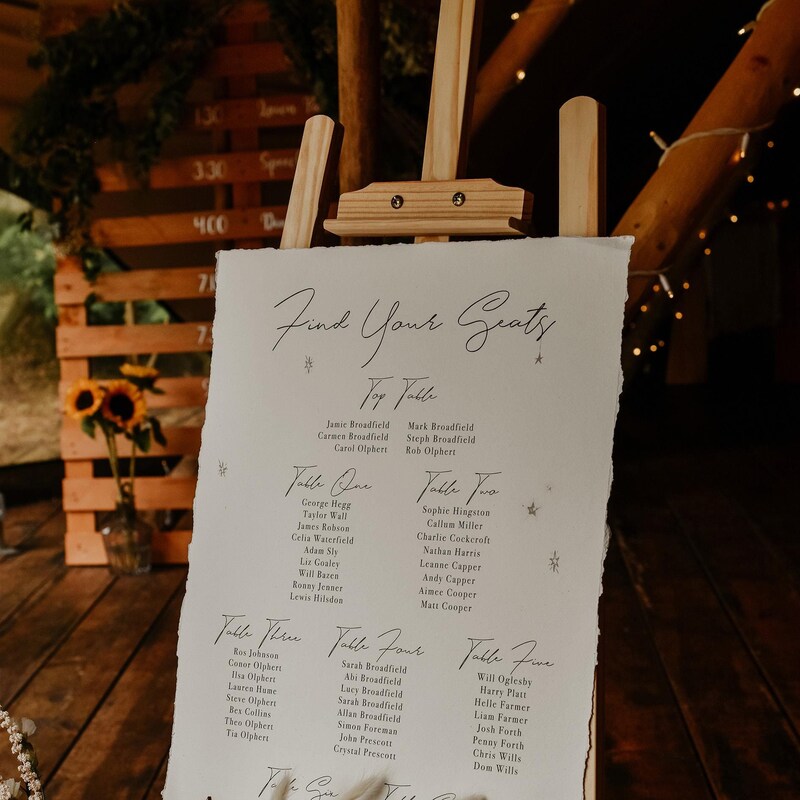 1.30
3.30
4.00
Find Your Seats
Top Table
Jamie Broadfield Mark Broadfield
Carmen Broadfield Steph Broadfield
Carol Olphert Rob Olphert
Table One
George Hegg
Taylor Wall
James Robson
Celia Waterfield
Adam Sly
Liz Goaley
Will Bazen
Ronny Jenner
Lewis Hilsdon
Table Two
Sophie Hingston
Callum Miller
Charlie Cockcroft
Nathan Harris
Leanne Capper
Andy Capper
Aimee Cooper
Matt Cooper
Table Three
Ros Johnson
Conor Olphert
Ilsa Olphert
Lauren Hume
Steve Olphert
Bex Collins
Theo Olphert
Tia Olphert
Table Four
Sarah Broadfield
Abi Broadfield
Lucy Broadfield
Sarah Broadfield
Allan Broadfield
Simon Foreman
John Prescott
Crystal Prescott
Table Five
Will Oglesby
Harry Platt
Helle Farmer
Liam Farmer
Josh Forth
Penny Forth
Chris Wills
Dom Wills
Table Six
Table